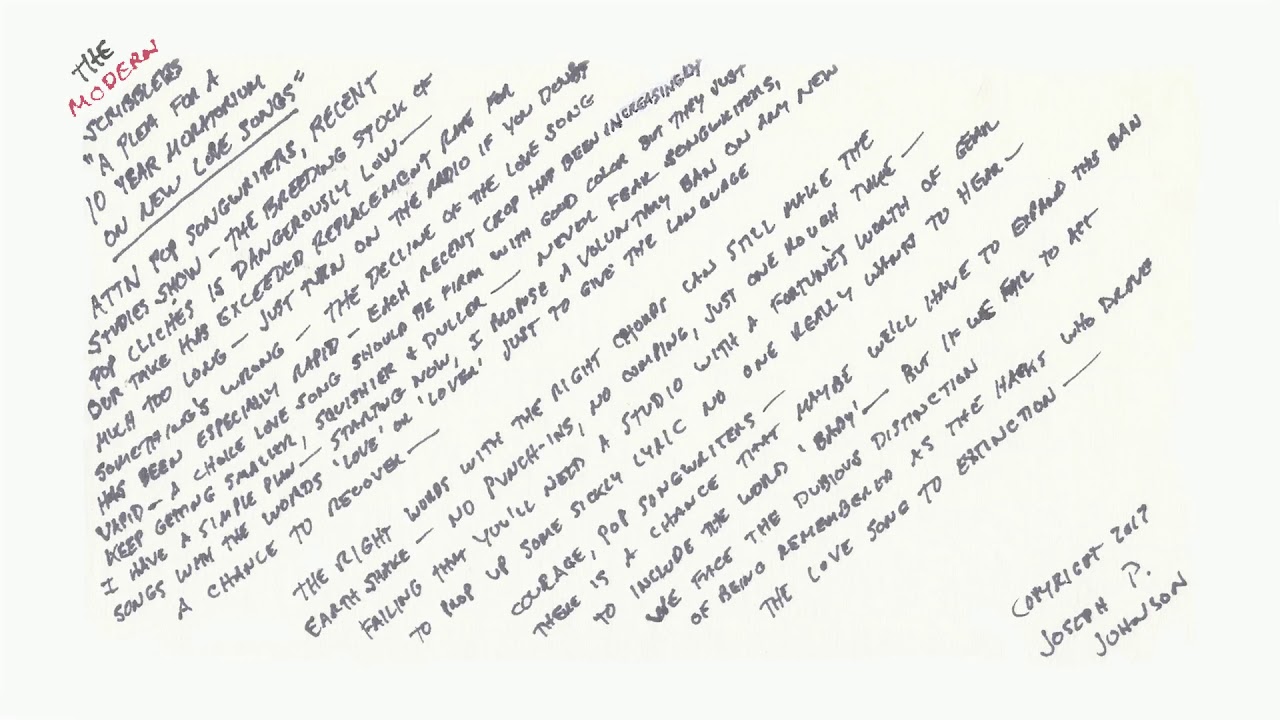 THE
MODERN
SCRIBBLERS
"A PLEA FOR A
10 YEAR MORATORIUM
ON NEW LOVE SONGS"
ATTN POP SONGWRITERS, RECENT
STUDIES SHOW – THE BREEDING STOCK OF
POP CLICHÉS IS DANGEROUSLY LOW —
OUR TAKE HAS EXCEEDED REPLACEMENT RATE FOR
MUCH TOO LONG – JUST TURN ON THE RADIO IF YOU DOUBT
SOMETHING'S WRONG – THE DECLINE OF THE LOVE SONG
HAS BEEN ESPECIALLY RAPID – EACH RECENT CROP HAS BEEN INCREASINGLY
VAPID – A CHOICE LOVE SONG SHOULD BE FIRM WITH GOOD COLOR BUT THEY JUST
KEEP GETTING SMALLER, SQUISHIER & DULLER — NEVER FEAR SONGWRITERS,
I HAVE A SIMPLE PLAN – STARTING NOW, I PROPOSE A VOLUNTARY BAN ON ANY NEW
SONGS WITH THE WORDS 'LOVE' OR 'LOVER' JUST TO GIVE THE LANGUAGE
A CHANCE TO RECOVER —
THE RIGHT WORDS WITH THE RIGHT CHORDS CAN STILL MAKE THE
EARTH SHAKE – NO PUNCH-INS, NO COMPING, JUST ONE ROUGH TAKE —
FAILING THAT YOU'LL NEED A STUDIO WITH A FORTUNE'S WORTH OF GEAR
TO PROP UP SOME SICKLY LYRIC NO ONE REALLY WANTS TO HEAR —
COURAGE, POP SONGWRITERS —
THERE IS A CHANCE THAT MAYBE WE'LL HAVE TO EXPAND THIS BAN
TO INCLUDE THE WORD 'BABY' – BUT IF WE FAIL TO ACT
WE FACE THE DUBIOUS DISTINCTION
OF BEING REMEMBERED AS THE HACKS WHO DROVE
THE LOVE SONG TO EXTINCTION —
COPYRIGHT 2017
JOSEPH P.
JOHNSON